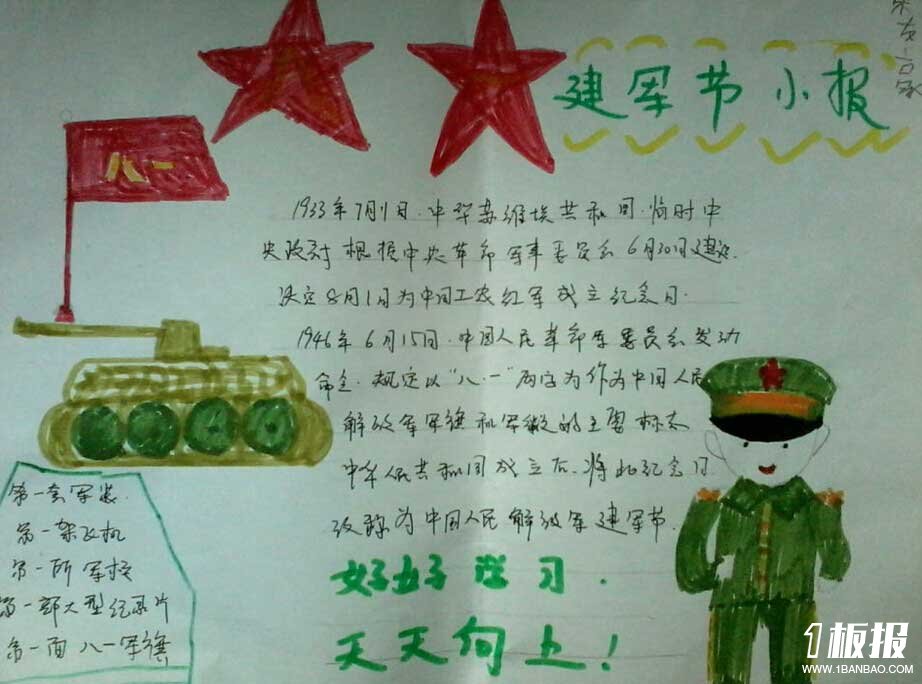 建军节小报
八一
1933年7月1日.中华苏维埃共和国.临时中
央政府根据中央革命军事委员会6月30日建议.
决定8月1日为中国工农红军成立纪念日.
1946年6月15日.中国人民革命军事委员会发动
命令.规定以“八.一”两字为作为中国人民
解放军军旗和军徽的主要标志
中华人民共和国成立后.将此纪念日
改称为中国人民解放军建军节.
好好学习.
天天向上!
第一套军装.
第一架飞机
第一所军校
第一部大型纪录片
第一面八一军旗
1板报
WWW.1BANBAO.COM